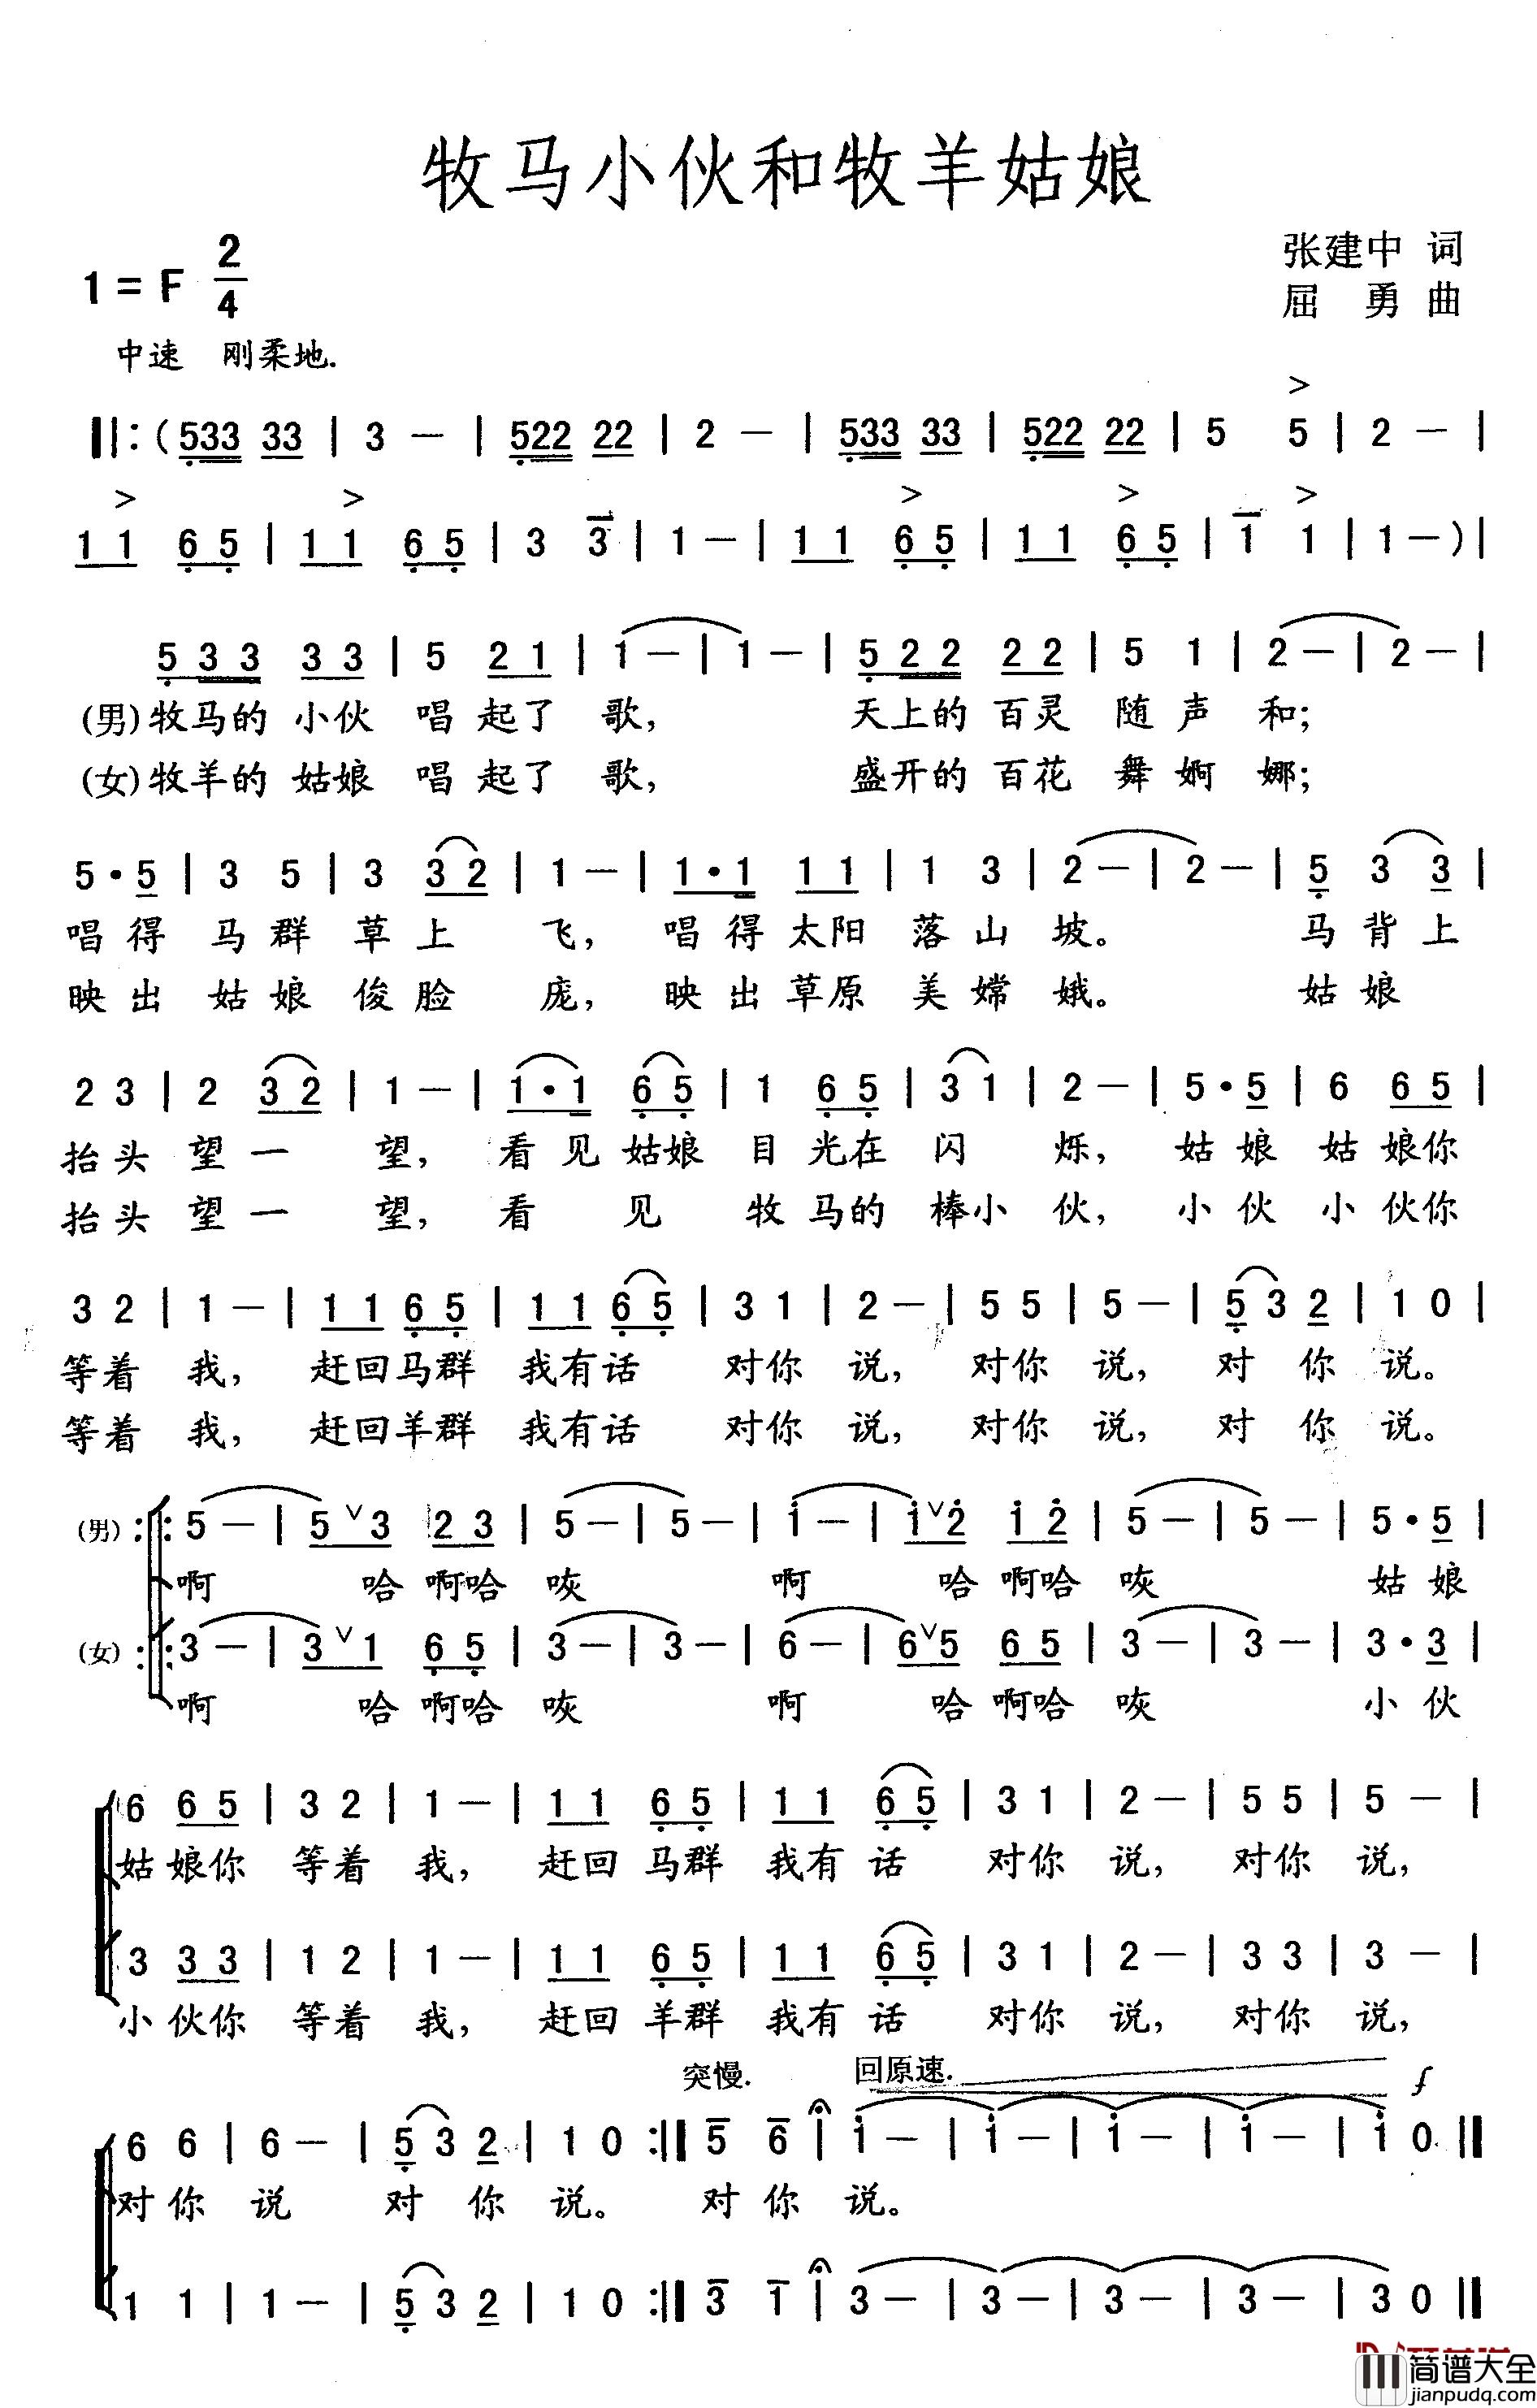 牧马小伙和牧羊姑娘
1 = F 2/4
张建中 词
屈 勇 曲
中速 刚柔地.
‖: ( 533 33 | 3 — | 522 22 | 2 — | 533 33 | 522 22 | 5 5 | 2 — |
1 1 6 5 | 1 1 6 5 | 3 3 | 1 — | 1 1 6 5 | 1 1 6 5 | 1 1 | 1 — ) |
5 3 3 3 3 | 5 2 1 | 1 — | 1 — | 5 2 2 2 2 | 5 1 | 2 — | 2 — |
(男) 牧马的 小伙 唱 起了 歌, 天上的 百灵 随 声 和;
(女) 牧羊的 姑娘 唱 起了 歌, 盛开的 百花 舞 婀 娜;
5 · 5 | 3 5 | 3 3 2 | 1 — | 1 · 1 1 1 | 1 3 | 2 — | 2 — | 5 3 3 |
唱 得 马 群 草 上 飞, 唱 得 太阳 落 山 坡。 马 背 上
映 出 姑 娘 俊 脸 庞, 映 出 草原 美 嫦 娥。 姑 娘
2 3 | 2 3 2 | 1 — | 1 · 1 6 5 | 1 6 5 | 3 1 | 2 — | 5 · 5 | 6 6 5 |
抬头 望 一 望, 看 见 姑娘 目 光在 闪 烁, 姑 娘 姑 娘你
抬头 望 一 望, 看 见 牧 马的 棒小 伙, 小 伙 小 伙你
3 2 | 1 — | 1 1 6 5 | 1 1 6 5 | 3 1 | 2 — | 5 5 | 5 — | 5 3 2 | 1 0 |
等着 我, 赶回马群 我有话 对你 说, 对你 说, 对 你 说。
等着 我, 赶回羊群 我有话 对你 说, 对你 说, 对 你 说。
(男) 5 — | 5 ∨ 3 2 3 | 5 — | 5 — | i — | i ∨ 2 i 2 | 5 — | 5 — | 5 · 5 |
啊 哈 啊哈 咴 啊 哈 啊哈 咴 姑 娘
(女) 3 — | 3 ∨ 1 6 5 | 3 — | 3 — | 6 — | 6 ∨ 5 6 5 | 3 — | 3 — | 3 · 3 |
啊 哈 啊哈 咴 啊 哈 啊哈 咴 小 伙
6 6 5 | 3 2 | 1 — | 1 1 6 5 | 1 1 6 5 | 3 1 | 2 — | 5 5 | 5 — |
姑 娘你 等着 我, 赶回 马群 我有 话 对你 说, 对你 说,
3 3 3 | 1 2 | 1 — | 1 1 6 5 | 1 1 6 5 | 3 1 | 2 — | 3 3 | 3 — |
小 伙你 等着 我, 赶回 羊群 我有 话 对你 说, 对你 说,
突慢. 回原速. f
6 6 | 6 — | 5 3 2 | 1 0 :‖ 5 6 | i — | i — | i — | i — | i 0 ‖
对你 说 对 你 说。 对 你 说。
1 1 | 1 — | 5 3 2 | 1 0 :‖ 3 1 | 3 — | 3 — | 3 — | 3 — | 3 0 ‖
简谱大全
jianpudq.com